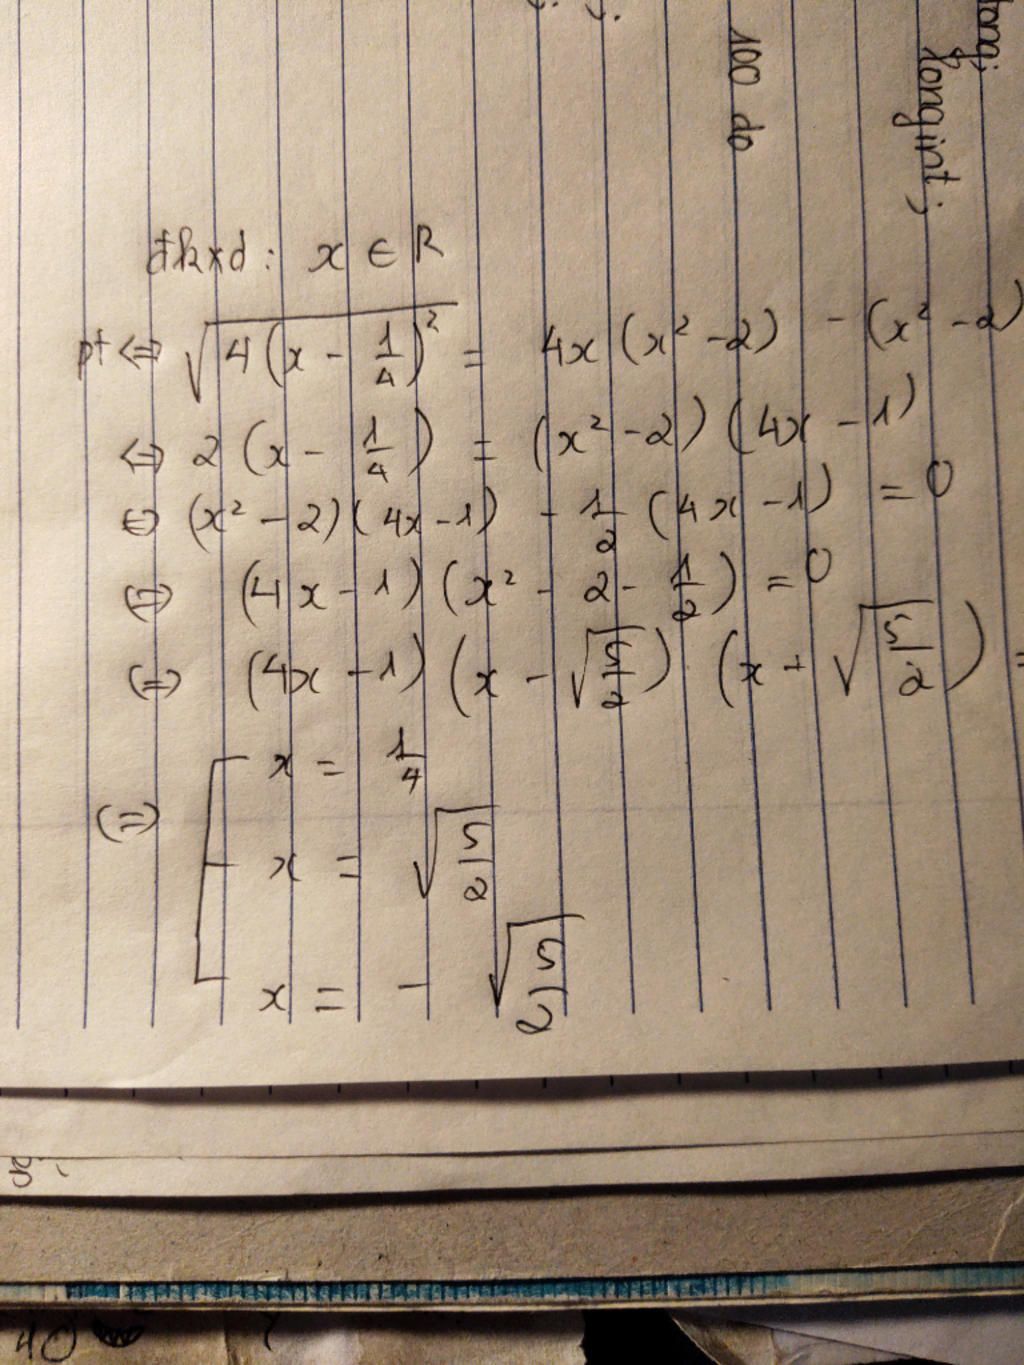 100 do
longint;
đkxđ: x ∈ R
pt ⇔ √(4(x - 1/4)²) = 4x(x² - 2) - (x² - 2)
⇔ 2(x - 1/4) = (x² - 2)(4x - 1)
⇔ (x² - 2)(4x - 1) - 1/2(4x - 1) = 0
⇔ (4x - 1)(x² - 2 - 1/2) = 0
⇔ (4x - 1)(x - √(5/2))(x + √(5/2)) =
⇔ [ x = 1/4
x = √(5/2)
x = - √(5/2)
40